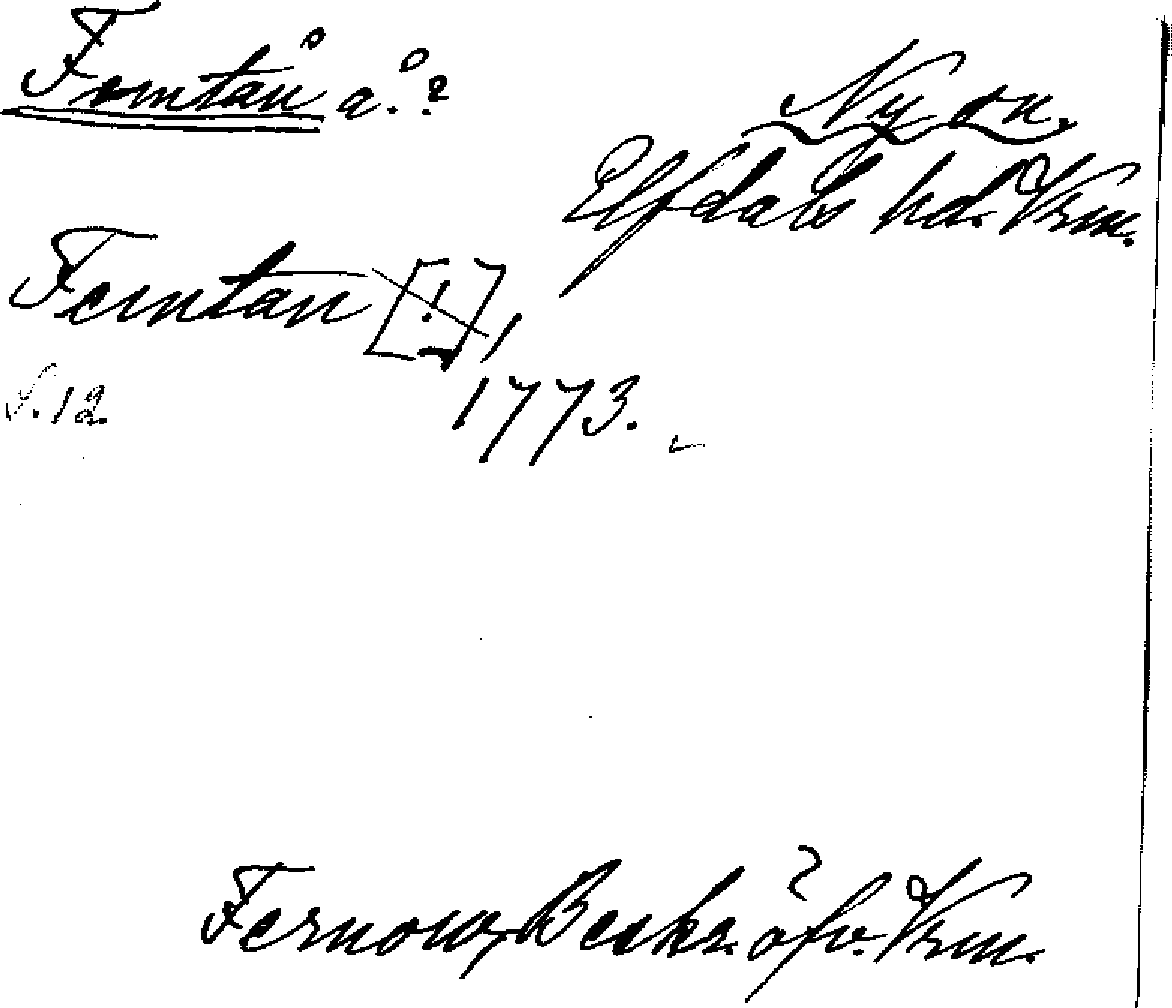 Fomtån å.?
Ny sn.
Elfdals hd. Vrm.
Femtan [!],
1773.
S. 12
Fernow, Beskr. öfv. Vrm.